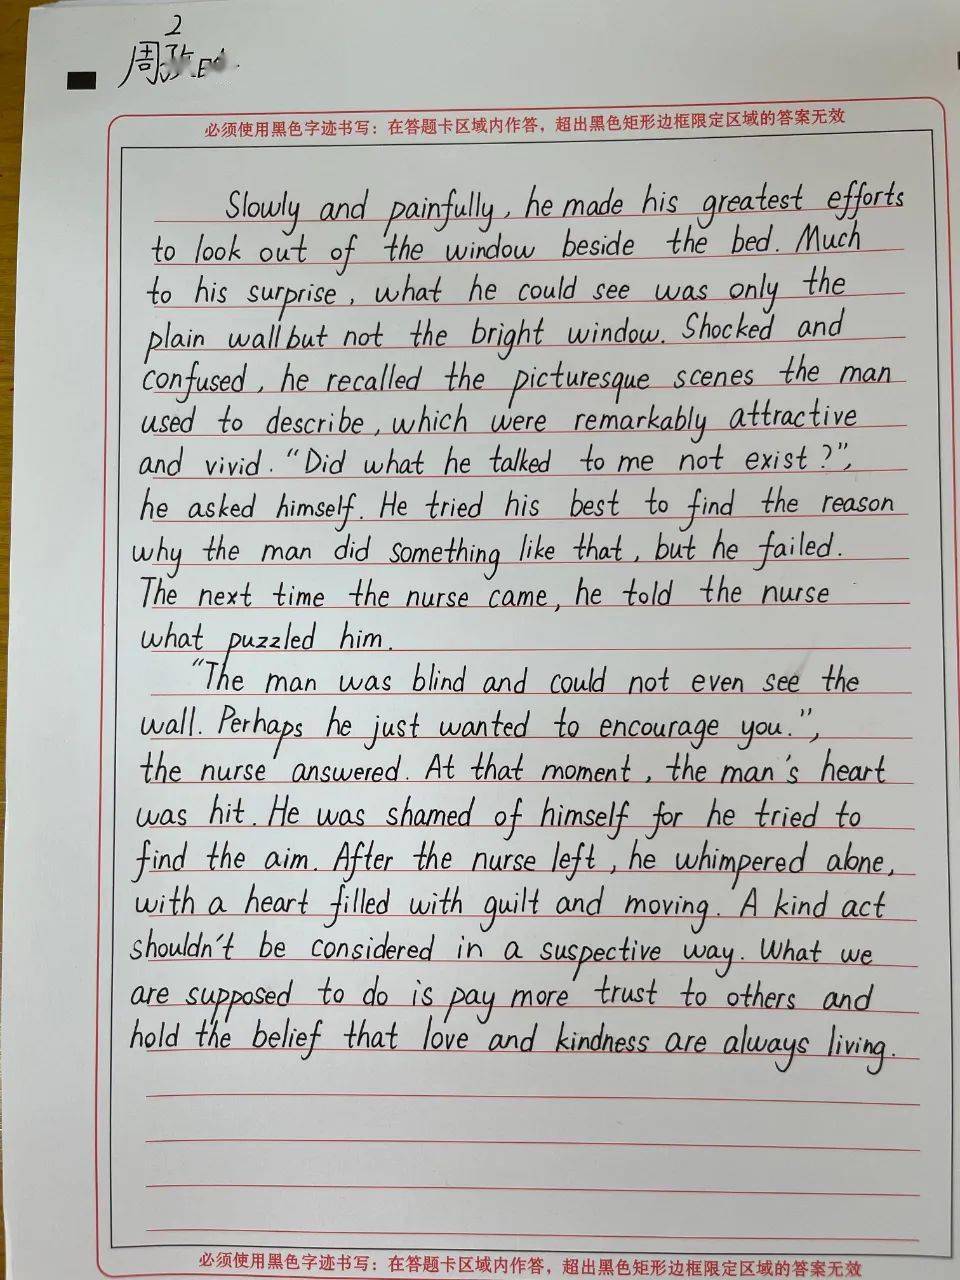 2
周
必须使用黑色字迹书写：在答题卡区域内作答，超出黑色矩形边框限定区域的答案无效
Slowly and painfully, he made his greatest efforts
to look out of the window beside the bed. Much
to his surprise, what he could see was only the
plain wall but not the bright window. Shocked and
confused, he recalled the picturesque scenes the man
used to describe, which were remarkably attractive
and vivid. "Did what he talked to me not exist?",
he asked himself. He tried his best to find the reason
why the man did something like that, but he failed.
The next time the nurse came, he told the nurse
what puzzled him.
"The man was blind and could not even see the
wall. Perhaps he just wanted to encourage you.",
the nurse answered. At that moment, the man's heart
was hit. He was shamed of himself for he tried to
find the aim. After the nurse left, he whimpered alone,
with a heart filled with guilt and moving. A kind act
shouldn't be considered in a suspective way. What we
are supposed to do is pay more trust to others and
hold the belief that love and kindness are always living.
必须使用黑色字迹书写：在答题卡区域内作答，超出黑色矩形边框限定区域的答案无效